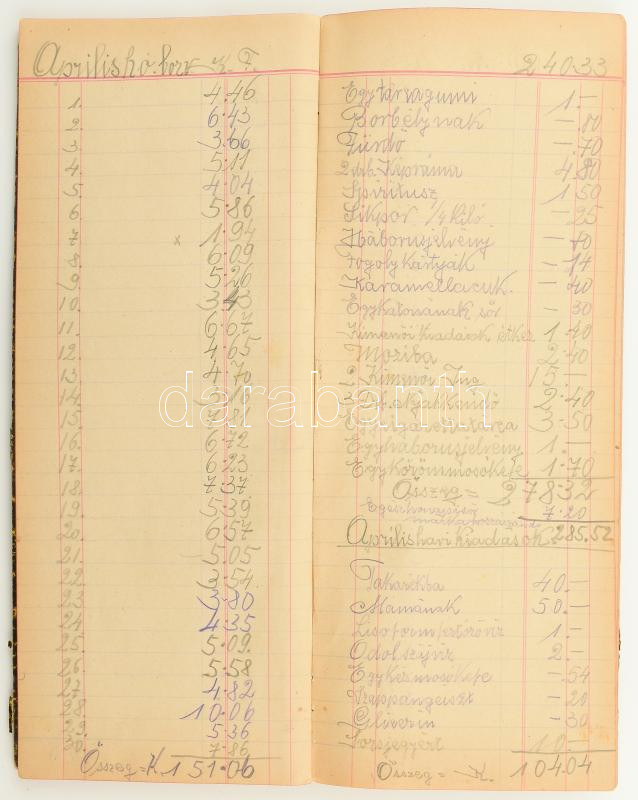 Április hó. borr K. F.
1. 4.46
2. 6.43
3. 3.66
4. 5.11
5. 4.04
6. 5.86
7. x 1.94
8. 6.09
9. 5.26
10. 3.43
11. 6.67
12. 4.65
13. 4.70
14. 3.18
15. 7.81
16. 6.72
17. 6.23
18. 7.37
19. 5.39
20. 6.57
21. 5.05
22. 3.54
23. 3.80
24. 4.35
25. 5.09.
26. 5.58
27. 4.82
28. 10.06
29. 5.36
30. 7.86
Összeg = K 151.06
240.33
Egy 1.—
Borbélynak —.80
Fürdő —.70
2 drb. 4.80
Spiritusz 1.50
Sikpor ¼ kiló —.25
Háborusjelvény —.40
Fogoly kártyák —.14
Karamellacuk. —.40
Egy katonának sör —.30
Kimenői kiadások 1.40
Moziba 2.40
15.—
2.40
3.50
Egy háborusjelvény 1.—
Egy körömmosókefe 1.70
Összeg = 278.32
7.20
Április havi kiadások. 285.52
Takarékba 40.—
Mamának 50.—
1.—
Odol szájviz 2.—
Egy kézmosókefe —.54
Szappangeiszt —.20
Gliverin —.30
Sorsjegyért 10.—
Összeg = K. 104.04
darabanth